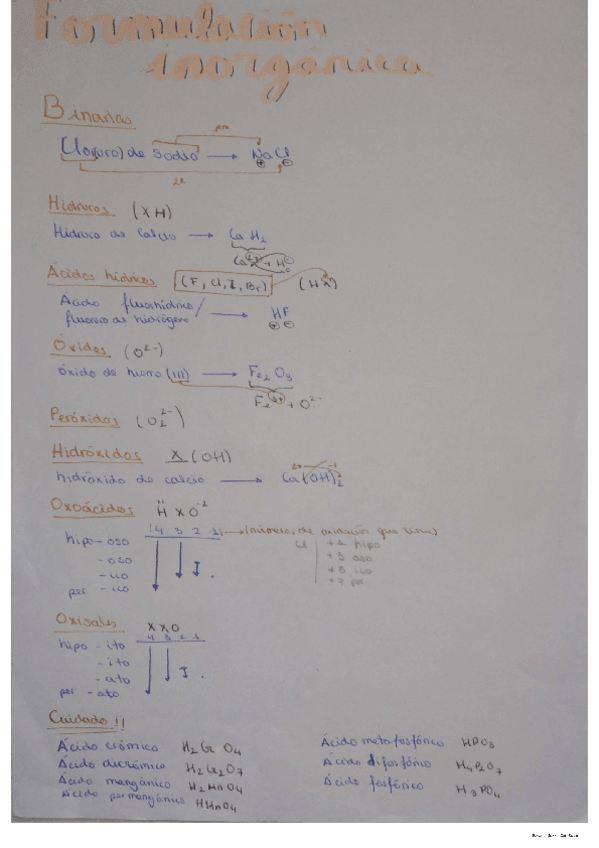 Formulación
inorgánica
Binarias
Cloro(uro) de sodio → NaCl
⊕ ⊖
Hidruros (XH)
Hidruro de calcio → CaH2
Ácidos hídricos (F, Cl, I, Br) (HX)
Ácido fluorhídrico/
fluoruro de hidrógeno → HF
⊕ ⊖
Óxidos (O2-)
óxido de hierro (III) → Fe2O3
+ O2-
Peróxidos (O2 2-)
Hidróxidos X(OH)
hidróxido de calcio → Ca(OH)2
Oxoácidos H X O-2
4 3 2 1 → (números de oxidación que tiene)
hipo-oso
-oso
-ico
per -ico
Cl +1 hipo
+3 oso
+5 ico
+7 per
Oxisales XXO
4 3 2 1
hipo -ito
-ito
-ato
per -ato
Cuidado!!
Ácido crómico H2CrO4
Ácido dicrómico H2Cr2O7
Ácido mangánico H2MnO4
Ácido permangánico HMnO4
Ácido metafosfórico HPO3
Ácido difosfórico H4P2O7
Ácido fosfórico H3PO4